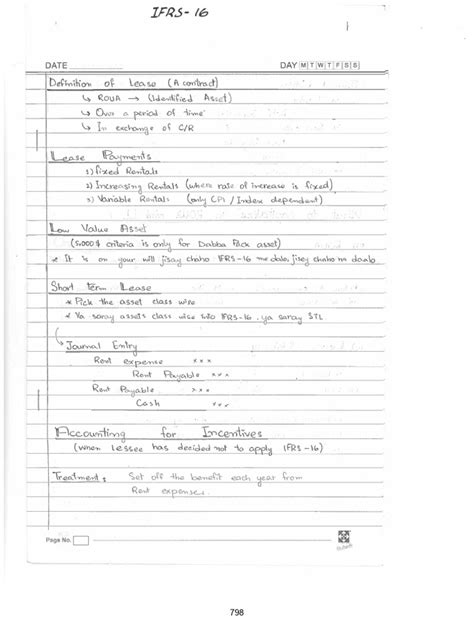 IFRS-16
DATE
DAY M T W T F S S
Definition of Lease (A contract)
↳ ROUA → (Identified Asset)
↳ Over a period of time
↳ In exchange of C/R
Lease Payments
1) fixed Rentals
2) Increasing Rentals (where rate of increase is fixed)
3) Variable Rentals (only CPI / Index dependent)
Low Value Asset
(5000$ criteria is only for Dabba Pack asset)
* It is on your will jisay chaho IFRS-16 me dalo, jisey chaho na daalo
Short Term Lease
* Pick the asset class wire
* Ya saray assets class wise into IFRS-16. ya saray STL.
↳ Journal Entry
Rent expense xxx
Rent Payable xxx
Rent Payable xxx
Cash xxx
Accounting for Incentives
(when lessee has decided not to apply IFRS-16)
Treatment: Set off the benefit each year from
Rent expenses.
Page No.
798